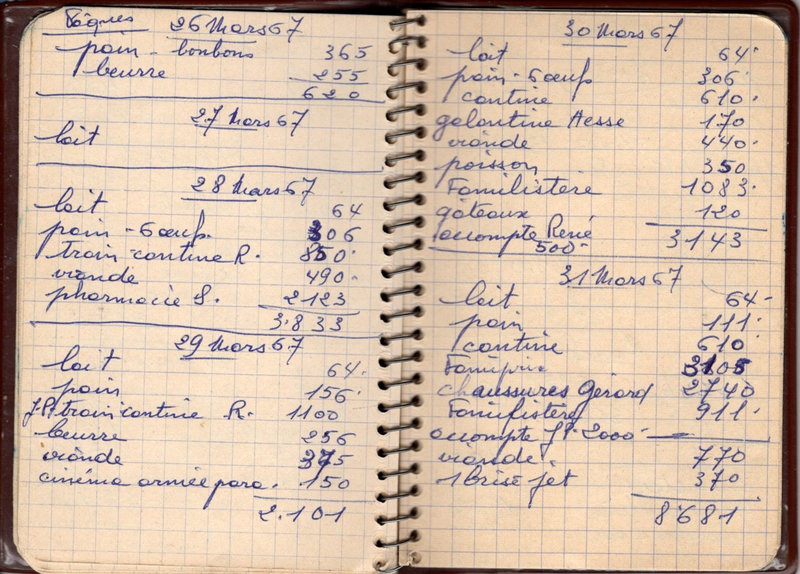 Pâques 26 Mars 67
pain - bonbons 365
beurre 255
620
27 Mars 67
lait
28 Mars 67
lait 64
pain - 6 œufs. 306
train cantine R. 850.
viande 490.
pharmacie S. 2123
3.833
29 Mars 67
lait 64.
pain 156.
J.P. train cantine R. 1100
beurre 256
viande 375
cinéma armée para. 150
2.101
30 Mars 67
lait 64.
pain - 6 œufs 306.
cantine 610.
galantine Hesse 170
viande 440.
poisson 350
Familistère 1083.
gâteaux 120
accompte René 500 -
3143
31 Mars 67
lait 64 -
pain 111.
cantine 610.
Familprix 3105
chaussures Gérard 2740
Familistère 911.
accompte J.P. 2000 -
viande 770
1 Brise jet 370
8681